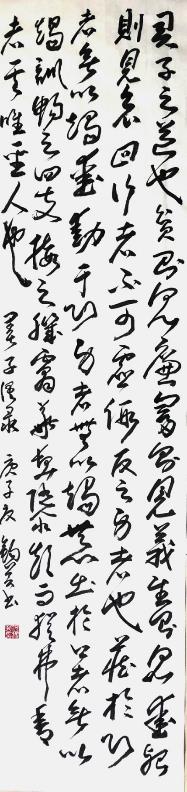 君子之道也貧則見廉富則見義生則見愛死
則見哀四行者不可虛假反之身者也藏於心
者無以竭愛動于身者無以竭恭出於口者無以
竭訓暢之四支接之肌膚華髮隳顛而猶弗舍
者其唯聖人也 墨子 录 庚子夏 书